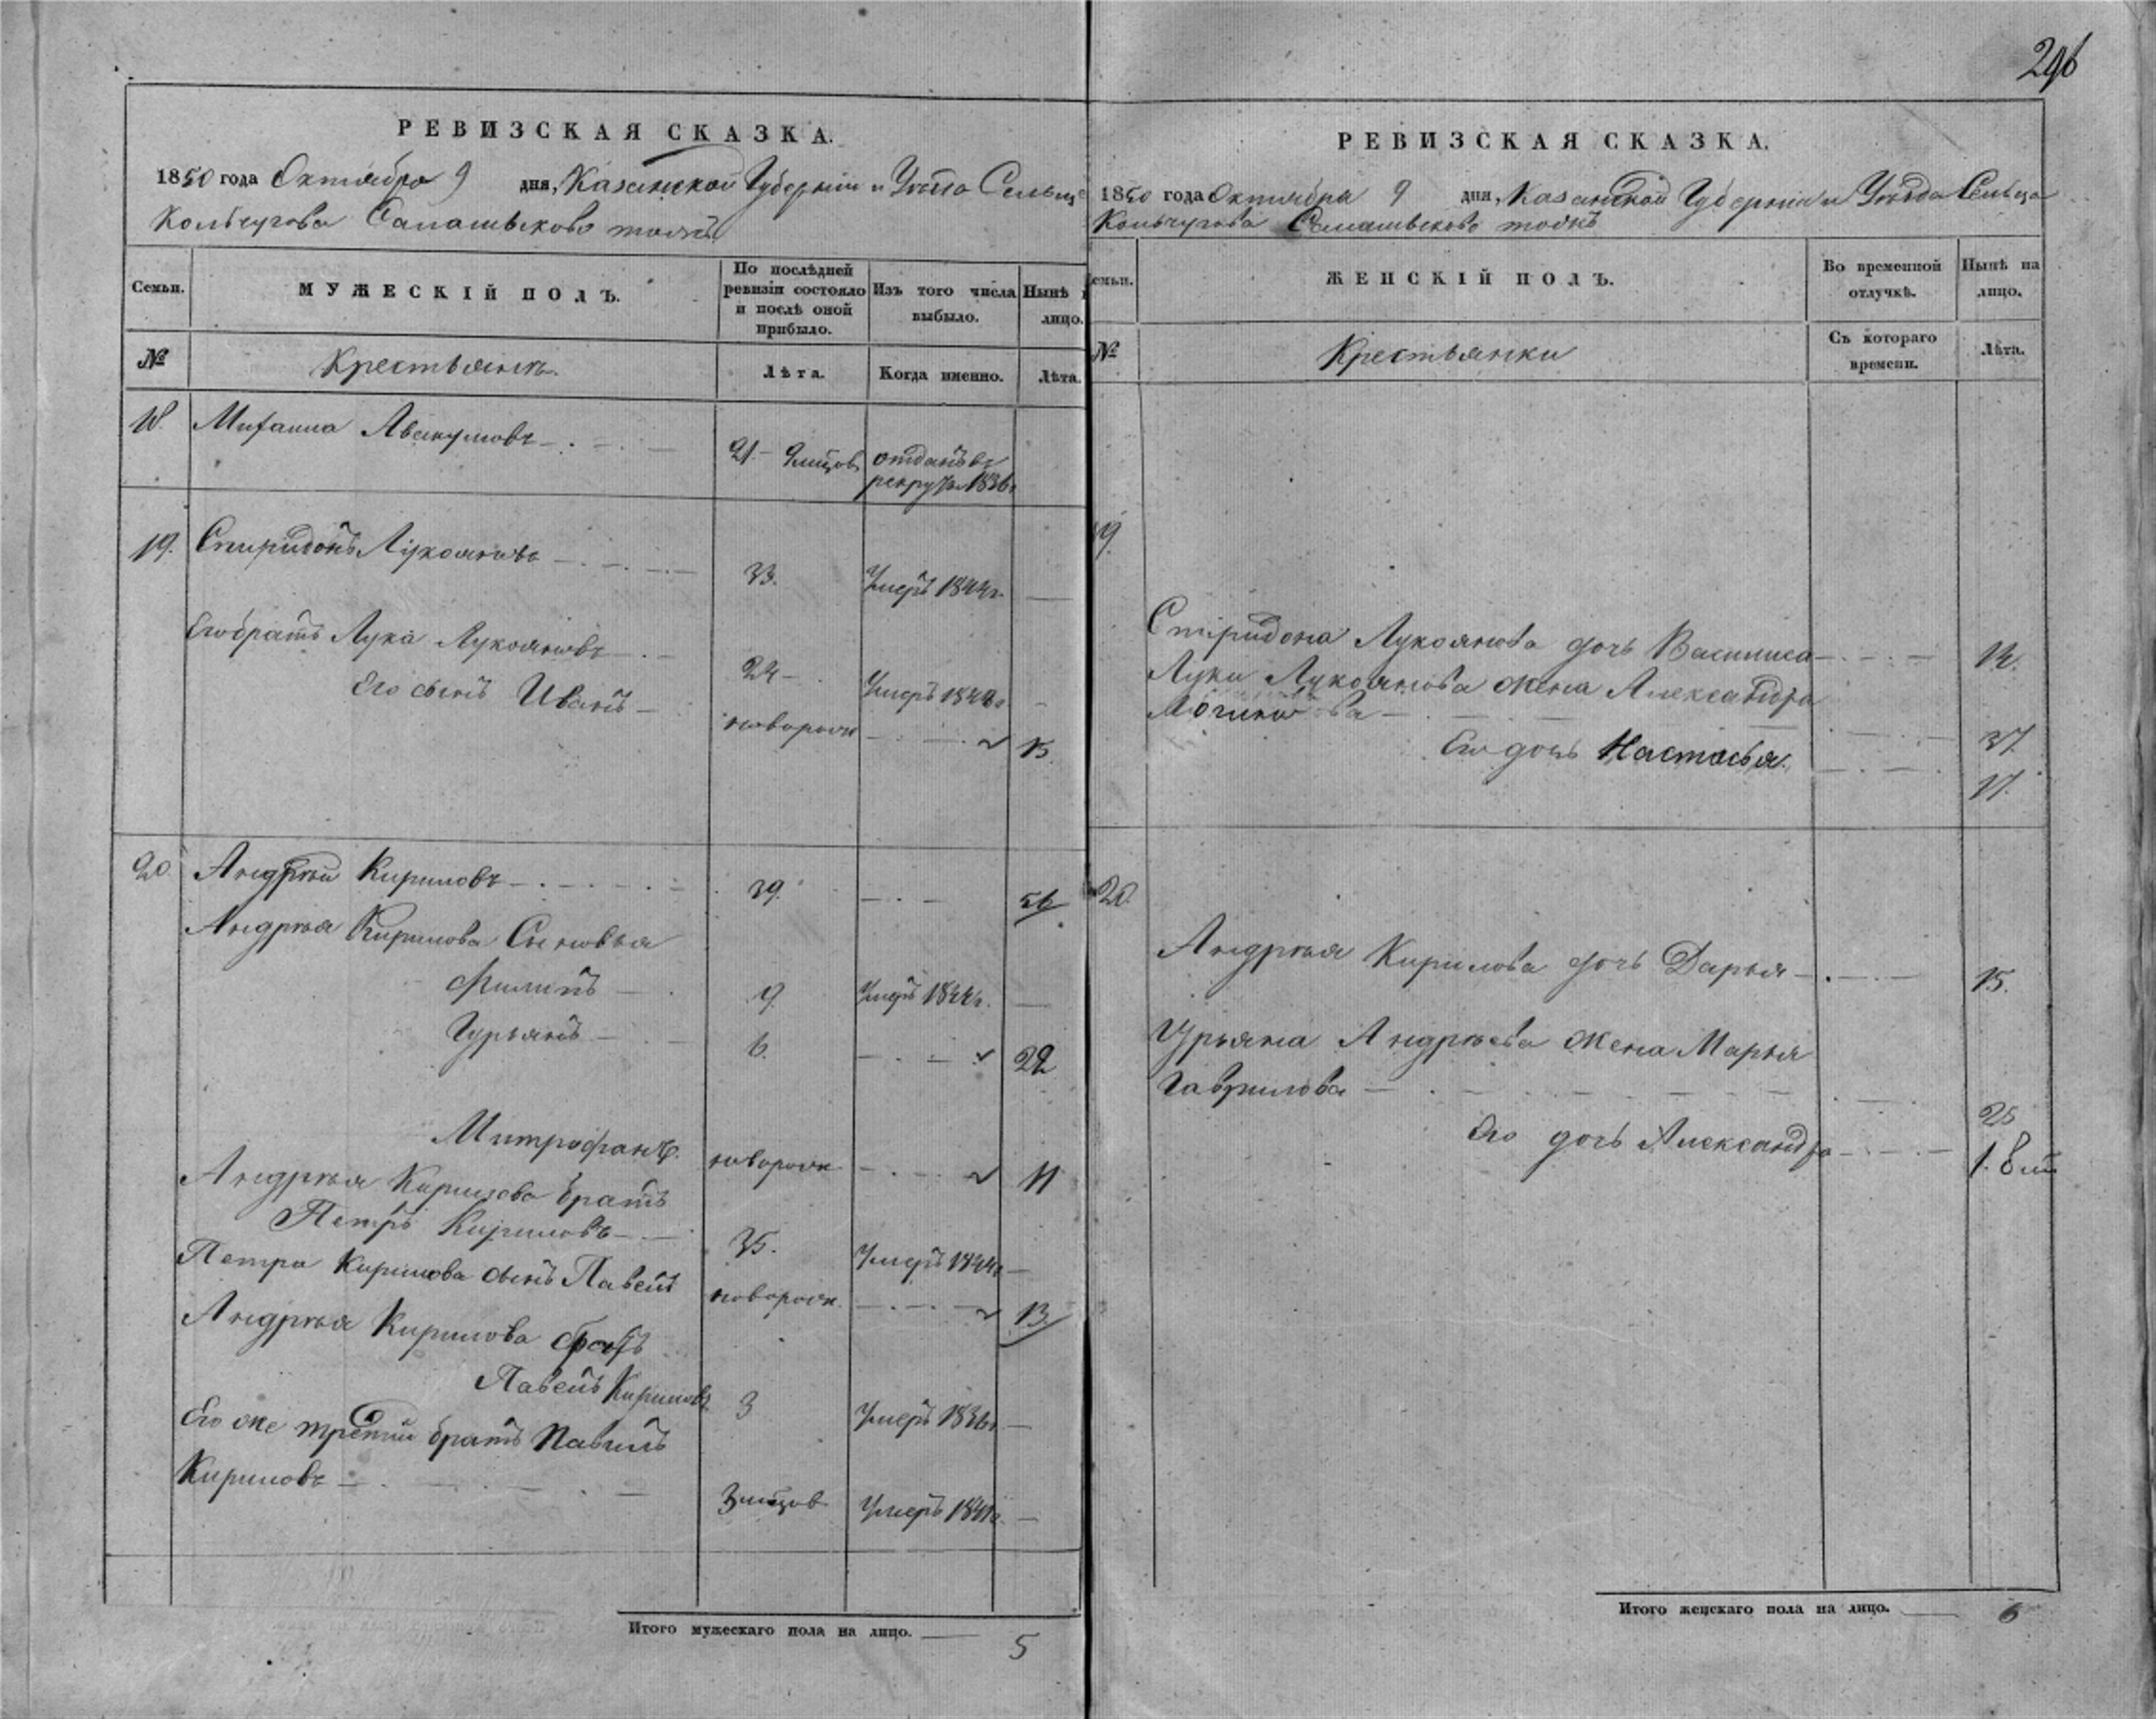 296
РЕВИЗСКАЯ СКАЗКА.
1850 года Октября 9 дня, Казанской Губернiи и Уѣзда Сельца
Кольчугова тожъ
Семьи.
МУЖЕСКIЙ ПОЛЪ.
По послѣдней ревизiи состояло и послѣ оной прибыло.
Изъ того числа выбыло.
Нынѣ лицо.
№
Крестьянъ.
Лѣта.
Когда именно.
Лѣта.
18. Михаила Авакумовъ 21 отданъ въ
рекруты 1836г
19. Спиридонъ Лукояновъ 33. Умеръ 1844г.
Его братъ Лука Лукояновъ 24 Умеръ
Его сынъ Иванъ новорожд
20. Андрей Кириловъ 39. 56
Андрея Кирилова Сыновья
Филипъ 9. Умеръ 1844г.
Гурьянъ 6. 22
Митрофанъ новорожд 11
Андрея Кирилова братъ
Петръ Кириловъ 35. Умеръ 1844г
Петра Кирилова сынъ Павелъ новорожд. 13.
Андрея Кирилова братъ
Павелъ Кириловъ 3 Умеръ 1836г
Его же третий братъ Павилъ
Кириловъ Умеръ
Итого мужескаго пола на лицо. 5
РЕВИЗСКАЯ СКАЗКА.
1850 года Октября 9 дня, Казанской Губернiи и Уѣзда Сельца
Кольчугова тожъ
Семьи.
ЖЕНСКIЙ ПОЛЪ.
Во временной отлучкѣ.
Нынѣ на лицо.
№
Крестьянки
Съ котораго времени.
Лѣта.
19.
Спиридона Лукоянова дочь Василиса
Луки Лукоянова жена Александра
Логинова 37.
Его дочь Настасья. 17.
20.
Андрея Кирилова дочь Дарья 15.
Гурьяна Андреева жена Марья
Гаврилова 25
Его дочь Александра
Итого женскаго пола на лицо. 6